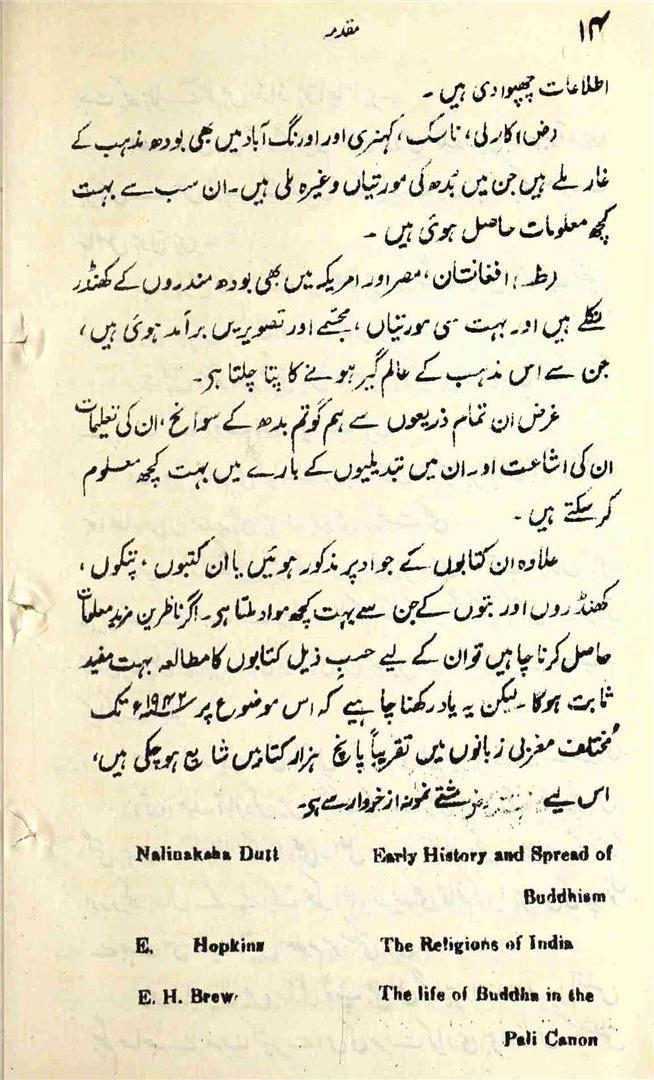 مقدمہ ۱۴
اطلاعات چھپوا دی ہیں ۔
(ض) کارلی، ناسک، کہنری اور اورنگ آباد میں بھی بودھ مذہب کے
غار ملے ہیں جن میں بُدھ کی مورتیاں وغیرہ ملی ہیں۔ ان سب سے بہت
کچھ معلومات حاصل ہوئی ہیں ۔
(ط) افغانستان، مصر اور امریکہ میں بھی بودھ مندروں کے کھنڈر
نکلے ہیں اور بہت سی مورتیاں، مجسّمے اور تصویریں برآمد ہوئی ہیں،
جن سے اس مذہب کے عالم گیر ہونے کا پتا چلتا ہی۔
غرض ان تمام ذریعوں سے ہم گوتم بدھ کے سوانح، ان کی تعلیمات
ان کی اشاعت اور ان میں تبدیلیوں کے بارے میں بہت کچھ معلوم
کر سکتے ہیں ۔
علاوہ ان کتابوں کے جو اوپر مذکور ہوئیں یا ان کتبوں،
کھنڈروں اور بتوں کے جن سے بہت کچھ مواد ملتا ہی۔ اگر ناظرین مزید معلومات
حاصل کرنا چاہیں تو ان کے لیے حسبِ ذیل کتابوں کا مطالعہ بہت مفید
ثابت ہوگا ۔ لیکن یہ یاد رکھنا چاہیے کہ اس موضوع پر ۱۹۴۲ء تک
مختلف مغربی زبانوں میں تقریباً پانچ ہزار کتابیں شایع ہو چکی ہیں،
اس لیے مشتے نمونہ از خروارے ہی۔
Nalinaksha Dutt Early History and Spread of
Buddhism
E. Hopkins The Religions of India
E. H. Brew The life of Buddha in the
Pali Canon